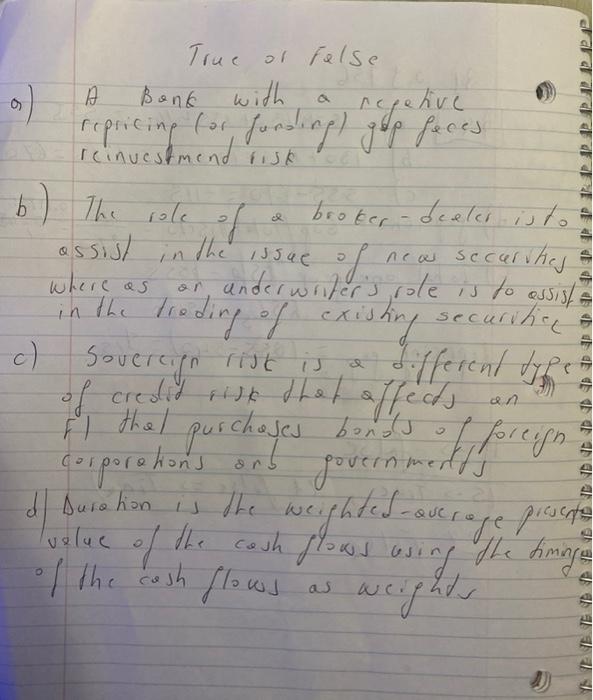 True or False
a) A Bank with a negative
repricing (or funding) gap faces
reinvestmend risk
b) The role of a broker-dealer is to
assist in the issue of new securities
where as an underwriters role is to assist
in the trading of existing securities
c) Sovereign risk is a different type
of credit risk that affects an
FI that purchases bonds of foreign
corporations and governments
d) Duration is the weighted-average present
value of the cash flows using the timing
of the cash flows as weights